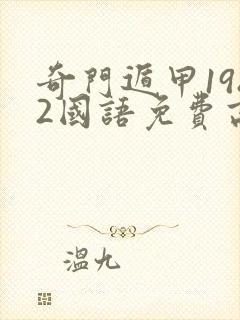 奇門遁甲19
2國語免費
溫九